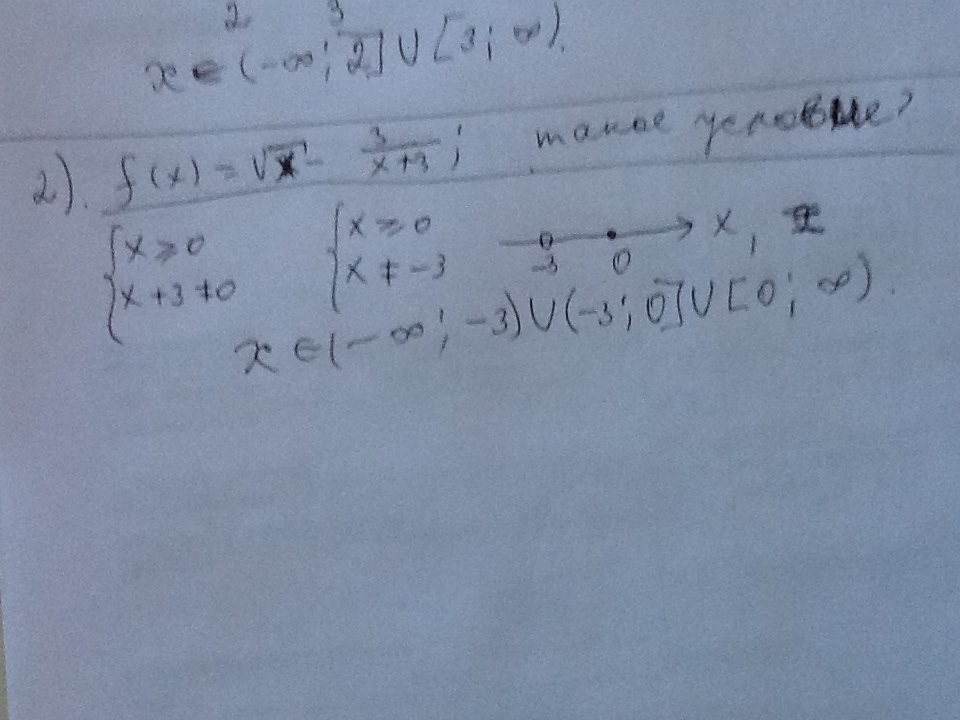 2 3
x ∈ (-∞; 2] ∪ [3; ∞).
2). f(x) = √x - 3/(x+3); такое условие?
{x ⩾ 0 {x ⩾ 0
{x + 3 ≠ 0 {x ≠ -3
-3 0 x,
x ∈ (-∞; -3) ∪ (-3; 0] ∪ [0; ∞).